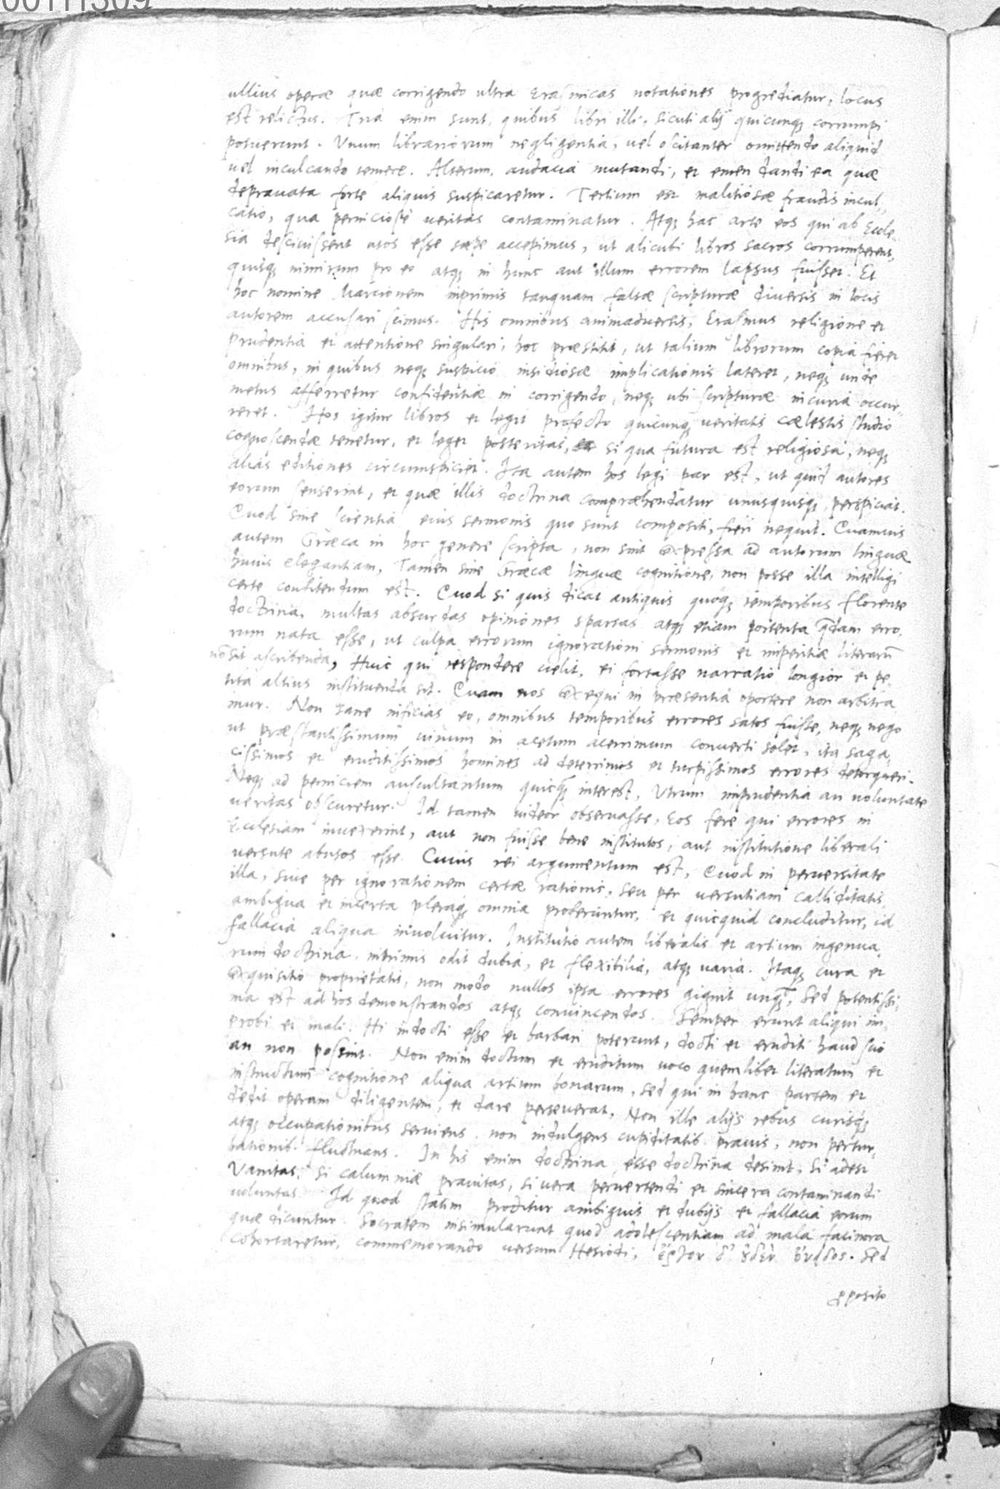 00111309
ullius operae quae corrigendo ultra Erasmicas notationes progrediatur, locus
est relictus. Tria enim sunt, quibus libri illi, sicuti alij quicunq; corrumpi
potuerunt. Unum librariorum negligentia, vel oscitanter omittendo aliquid
vel inculcando temere. Alterum, audacia mutandi, et emendandi ea quae
depravata forte aliquis suspicaretur. Tertium est malitiosae fraudis incul-
catio, qua perniciose veritas contaminatur. Atq; hac arte eos qui ab Eccle-
sia descivissent usos esse saepe accepimus, ut alicubi libros sacros corrumperent,
quisq; nimirum pro eo atq; in hunc aut illum errorem lapsus fuisset. Et
hoc nomine Marcionem inprimis tanquam falsae scripturae diversis in locis
autorem accusari scimus. His omnibus animadversis, Erasmus religione et
prudentia et attentione singulari, hoc praestitit, ut talium librorum copia fieret
omnibus, in quibus neq; suspicio insidiosae implicationis lateret, neq; unde
metus afferretur confidentiae in corrigendo, neq; ubi scripturae incuria occur-
reret. Hos igitur libros et legit profecto quicunq; veritatis caelestis studio
cognoscendae tenetur, et leget posteritas, si qua futura est religiosa, neq;
alias editiones circumspiciet. Ita autem hos legi par est, ut quid autores
eorum senserint, et quae illis doctrina compraehendatur unusquisq; perspiciat.
Quod sine scientia eius sermonis quo sunt compositi, fieri nequit. Quamvis
autem Graeca in hoc genere scripta, non sint expressa ad autorum linguae
huius elegantiam, Tamen sine Graecae linguae cognitione, non posse illa intelligi
certe confitendum est. Quod si quis dicat antiquis quoq; temporibus florente
doctrina, multas absurdas opiniones sparsas atq; etiam portenta q̄dam erro-
rum nata esse, ut culpa errorum ignorationi sermonis et imperitiae literarū
nō sit ascribenda, Huic qui respondere velit, ei fortasse narratio longior et pe-
tita altius instituenda sit. Quam nos exequi in praesentia oportere non arbitra
mur. Non sane inficias eo, omnibus temporibus errores satos fuisse, neq; nego
ut praestantissimum vinum in acetum acerrimum converti solet, ita saga-
cissimos et eruditissimos homines ad deterrimos et turpissimos errores detorqueri.
Neq; ad perniciem auscultantum quicq̄ interest, Utrum imprudentia an voluntate
veritas obscuretur. Id tamen videor observasse, Eos fere qui errores in
Ecclesiam invexerint, aut non fuisse bene institutos, aut institutione liberali
versute abusos esse. Cuius rei argumentum est, Quod in perversitate
illa, sive per ignorationem certae rationis, seu per versutiam calliditatis,
ambigua et incerta pleraq; omnia proferuntur, et quicquid concluditur, id
fallacia aliqua involvitur. Institutio autem liberalis et artium ingenua-
rum doctrina inprimis odit dubia, et flexibilia, atq; varia. Itaq; cura et
exquisitio proprietatis, non modo nullos ipsa errores gignit unq̄, Sed potentissi-
ma est ad hos demonstrandos atq; convincendos. Semper erunt aliqui im-
probi et mali. Hi indocti esse et barbari poterunt, docti et eruditi haud scio
an non possint. Non enim doctum et eruditum voco quemlibet literatum et
instructum cognitione aliqua artium bonarum, sed qui in hanc partem et
dedit operam diligentem, et dare perseverat, Non ille alijs rebus curisq;
atq; occupationibus serviens, non indulgens cupiditatib. pravis, non pertur-
bationib. fluctuans. In his enim doctrina esse doctrina desinit, Si adest
Vanitas, Si calumniae pravitas, si vera pervertendi et sincera contaminandi
voluntas. Id quod statim proditur ambiguis et dubijs et fallacia eorum
quae dicuntur. Socratem insimularunt quod adolescentiam ad mala facinora
cohortaretur, commemorando versum Hesiodi, ἔργον δ' οὐδὲν ὄνειδος. Sed
proposito